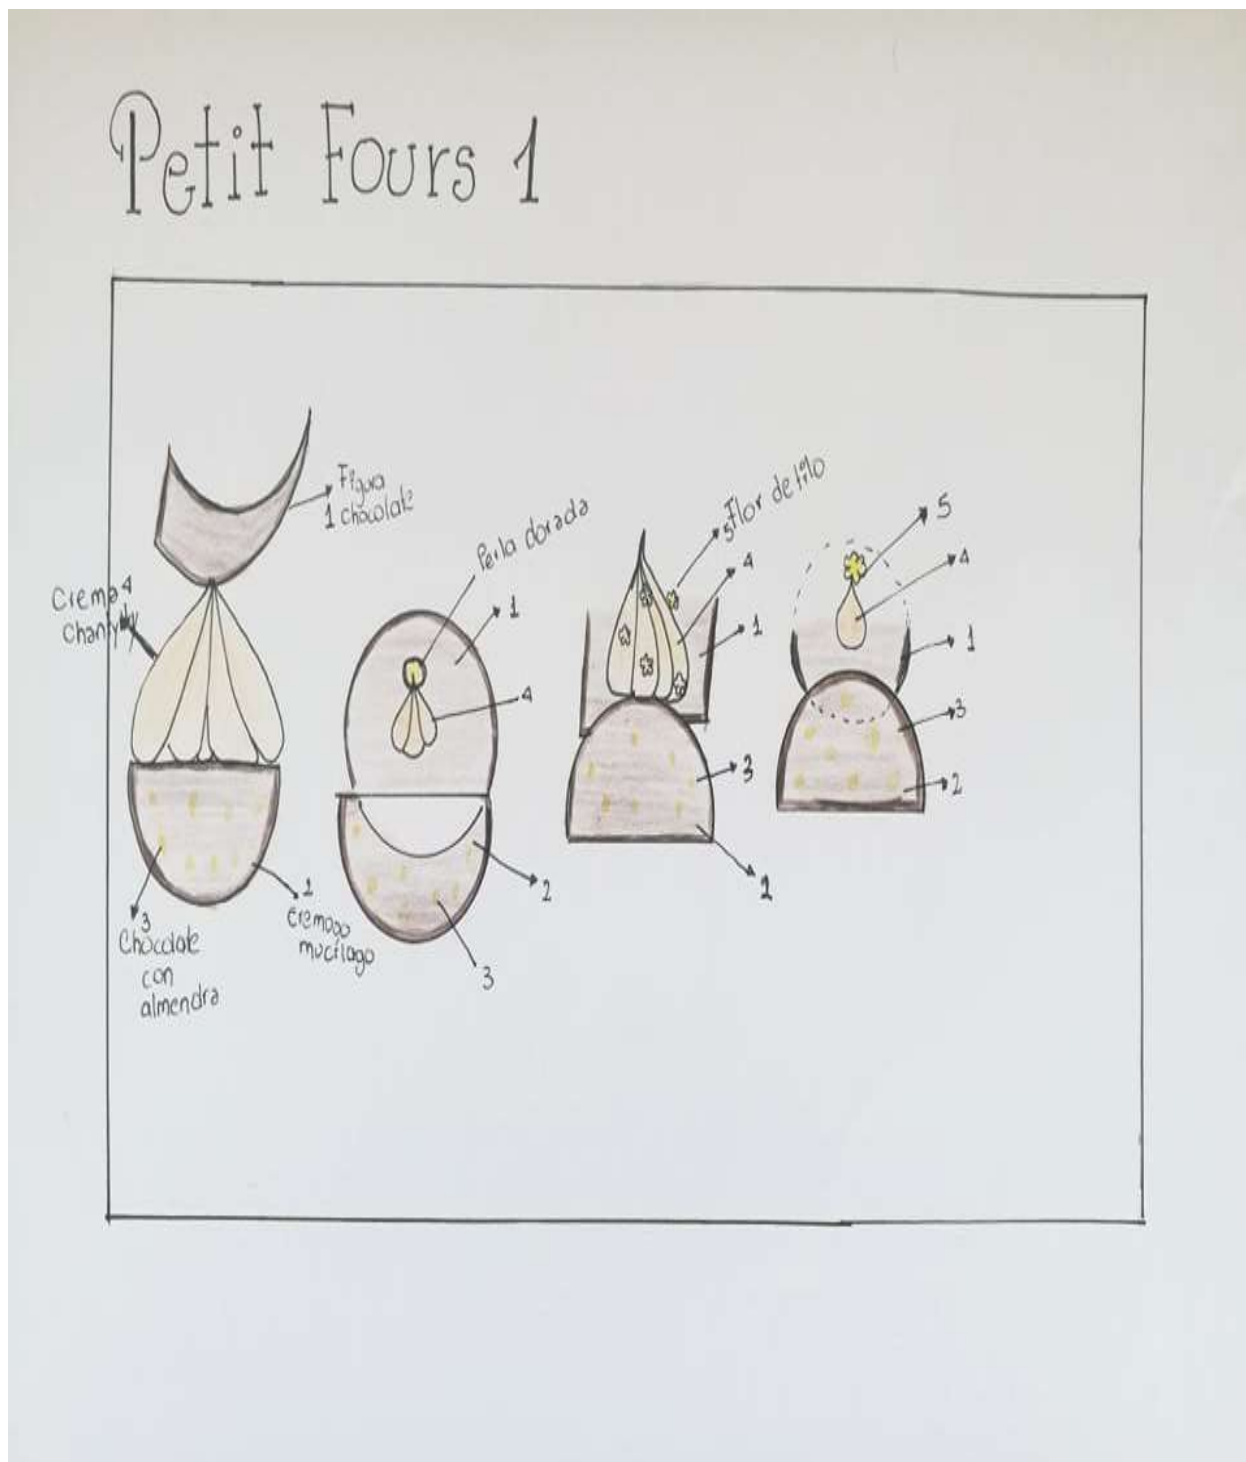 Petit Fours 1
Figura
1 chocolate
Crema 4
Chantylly
3
Chocolate
con
almendra
2
Cremoso
mucílago
Perla dorada
1
4
2
3
5 Flor de tilo
4
1
3
2
5
4
1
3
2